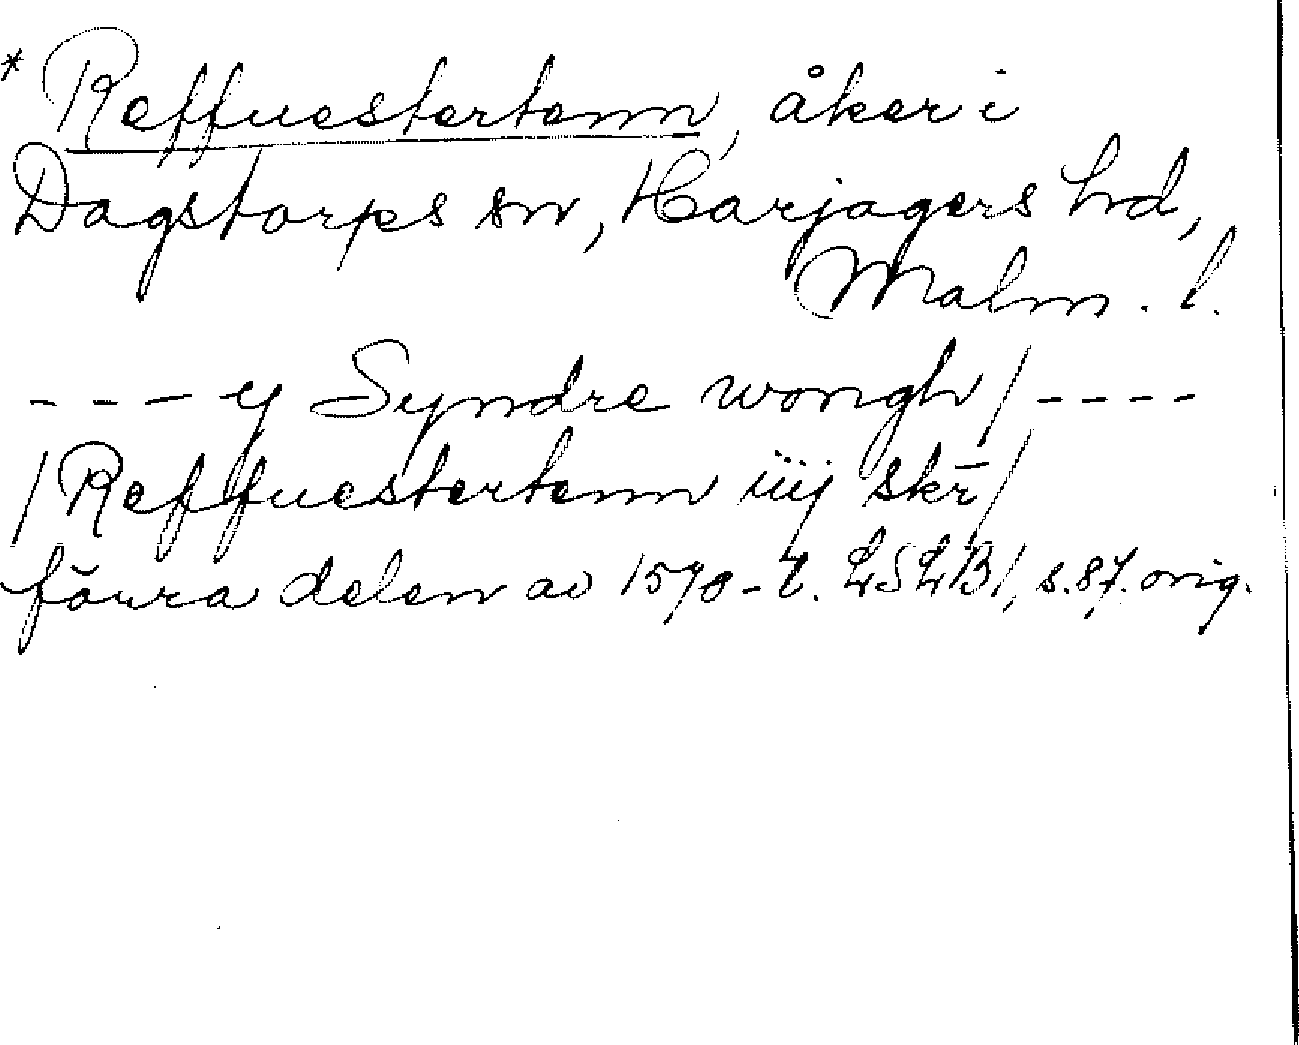 * Reffuestertenn, åker i
Dagstorps sn, Harjagers hd,
Malm. l.
- - - ÿ Syndre wongh / - - - -
/ Reffuestertenn iiij skr̄ /
förra delen av 1570-t. LSLB1, s.87. orig.